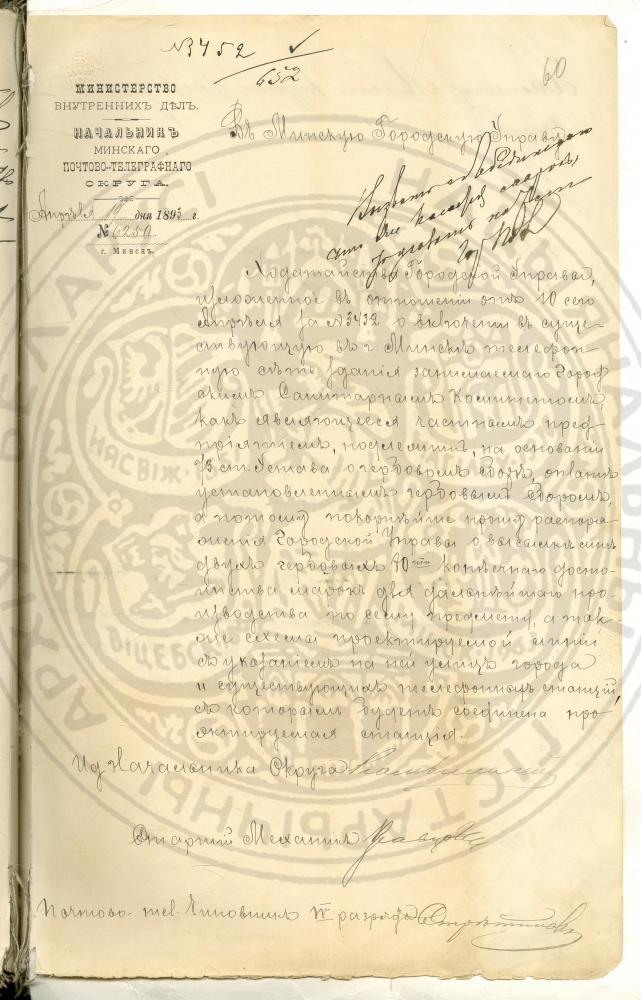 № 3452
652
60
МИНИСТЕРСТВО
ВНУТРЕННИХЪ ДѢЛЪ.
НАЧАЛЬНИКЪ
МИНСКАГО
ПОЧТОВО-ТЕЛЕГРАФНАГО
ОКРУГА.
Апрѣля дня 1895 г.
№ 6250
г. Минскъ.
Въ Минскую Городскую Управу
Ходатайство Городской Управы,
изложенное въ отношеніи отъ 10 сего
Апрѣля за № 3432 о включеніи въ суще-
ствующую въ г. Минскѣ телефон-
ную сѣть зданія занимаемаго Город-
скимъ Санитарнымъ Комитетомъ,
какъ являющееся частнымъ пред-
пріятіемъ, подлежитъ, на основаніи
ст. Устава о гербовомъ сборѣ, оплатѣ
установленнымъ гербовымъ сборомъ,
а потому покорнѣйше прошу распоря-
женія Городской Управы о высылкѣ мнѣ
двухъ гербовыхъ 80 копѣечнаго досто-
инства марокъ для дальнѣйшаго про-
изводства по сему предмету, а так-
же схемы проектируемой линіи
съ указаніемъ на ней улицъ города
и существующихъ телефонныхъ станцій,
съ которыми будетъ соединена про-
эктируемая станція.
Начальника Округа
Старшій Механикъ
Почтово-тел. Чиновникъ VI разряда
ВІЦЕБС
ВІЖ.